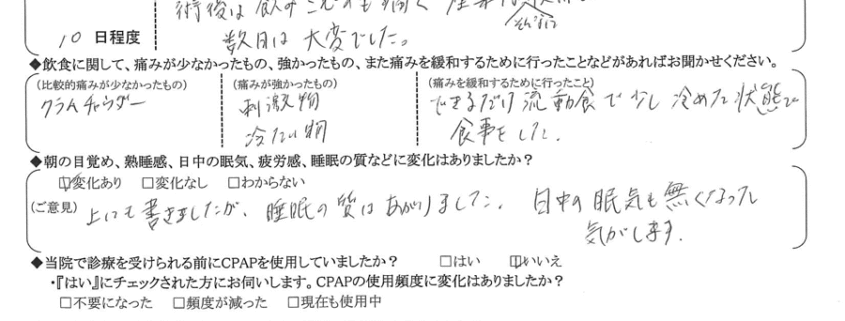 術後は飲みこむのも痛く
10 日程度
数日は大変でした。
◆飲食に関して、痛みが少なかったもの、強かったもの、また痛みを緩和するために行ったことなどがあればお聞かせください。
(比較的痛みが少なかったもの) (痛みが強かったもの) (痛みを緩和するために行ったこと)
クラムチャウダー 刺激物 できるだけ流動食で少し冷めた状態で
冷たい物 食事をした。
◆朝の目覚め、熟睡感、日中の眠気、疲労感、睡眠の質などに変化はありましたか?
☑変化あり □変化なし □わからない
(ご意見) 上にも書きましたが、睡眠の質はあがりました。日中の眠気も無くなった
気がします。
◆当院で診療を受けられる前にCPAPを使用していましたか? □はい ☑いいえ
・『はい』にチェックされた方にお伺いします。CPAPの使用頻度に変化はありましたか?
□不要になった □頻度が減った □現在も使用中